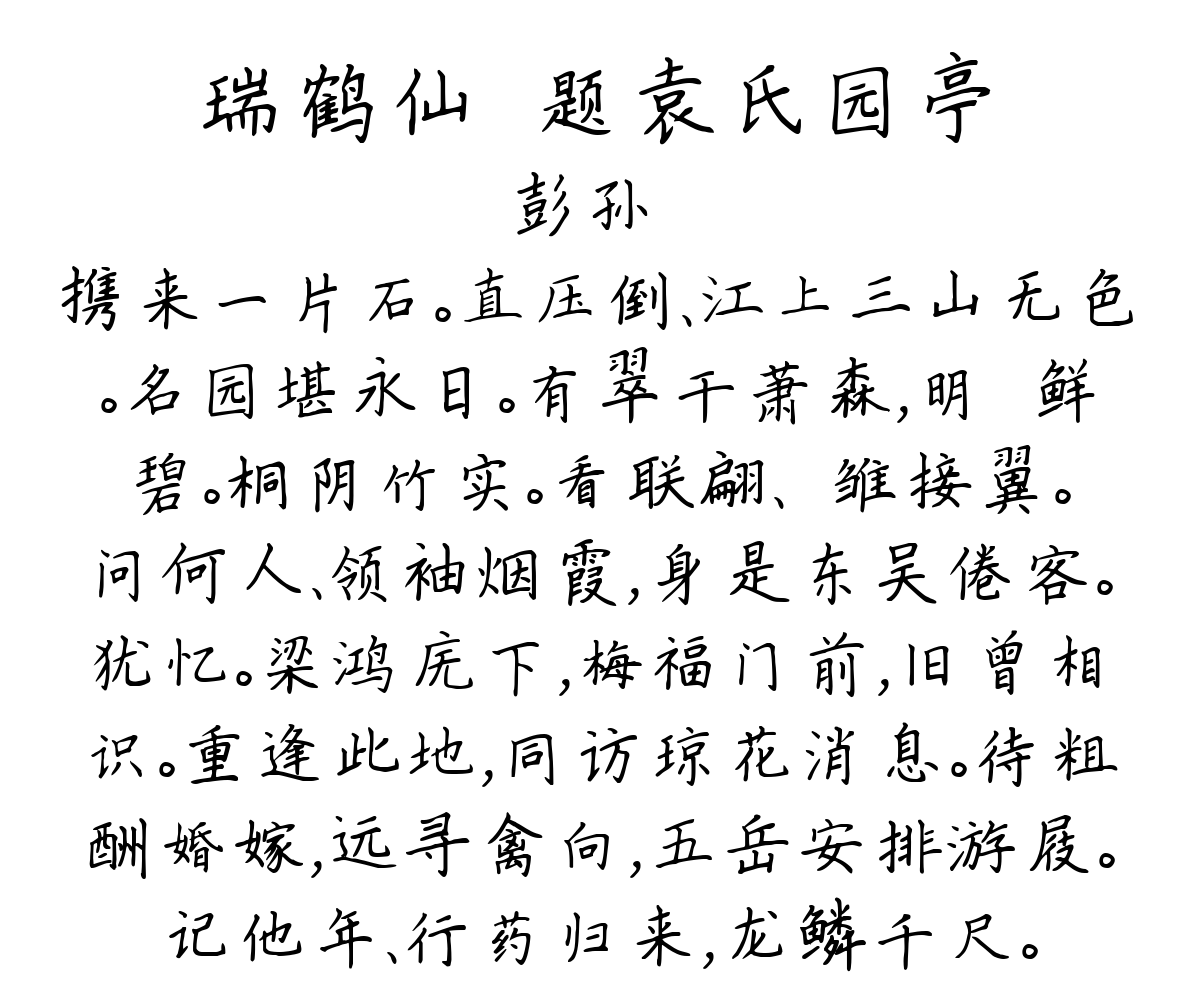 瑞鹤仙 题袁氏园亭
彭孙
携来一片石。直压倒、江上三山无色
。名园堪永日。有翠干萧森,明 鲜
碧。桐阴竹实。看联翩、 雏接翼。
问何人、领袖烟霞,身是东吴倦客。
犹忆。梁鸿庑下,梅福门前,旧曾相
识。重逢此地,同访琼花消息。待粗
酬婚嫁,远寻禽向,五岳安排游屐。
记他年、行药归来,龙鳞千尺。